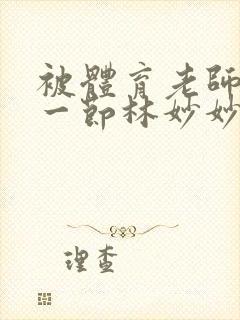 被體育老師
一節林妙妙
理查